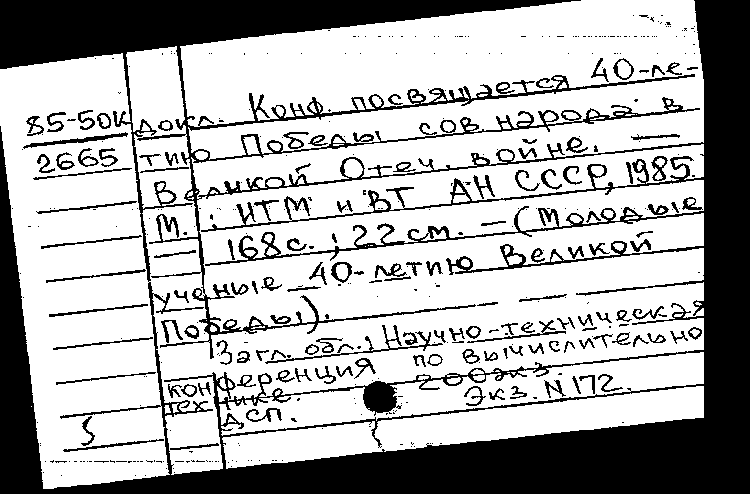 85-50к докл. Конф. посвящается 40-ле-
2665 тию Победы сов. народа в
Великой Отеч. войне. —
М. : ИТМ и ВТ АН СССР, 1985.
— 168 с. ; 22 см. — (Молодые
ученые 40-летию Великой
Победы).
Загл. обл.: Научно-техническая
конференция по вычислительно
технике. 200 экз.
ДСП. Экз. N 172.